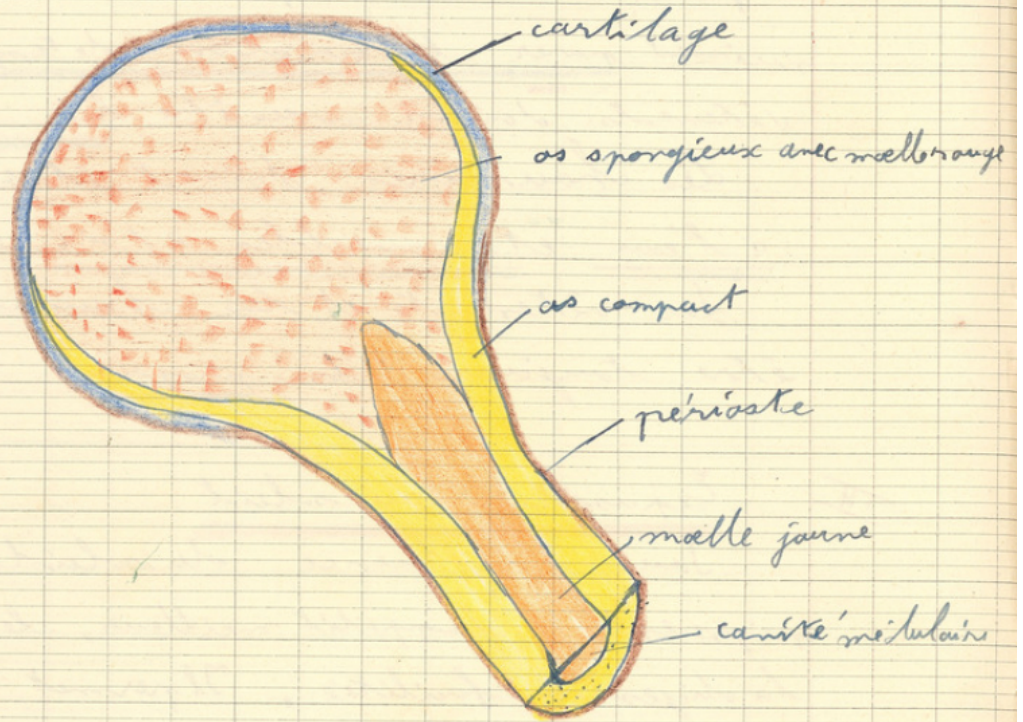 cartilage
os spongieux avec moelle rouge
os compact
périoste
moelle jaune
cavité médulaire